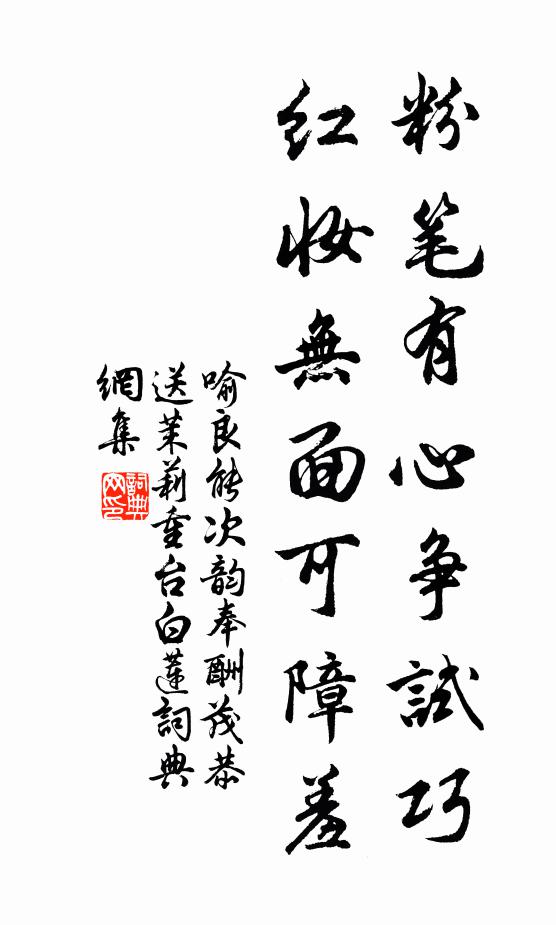 粉笔有心争試巧
红妆無面可障羞
喻良能次韵奉酬茂恭
送茉莉重台白蓮詞典
網集
詞典
网印